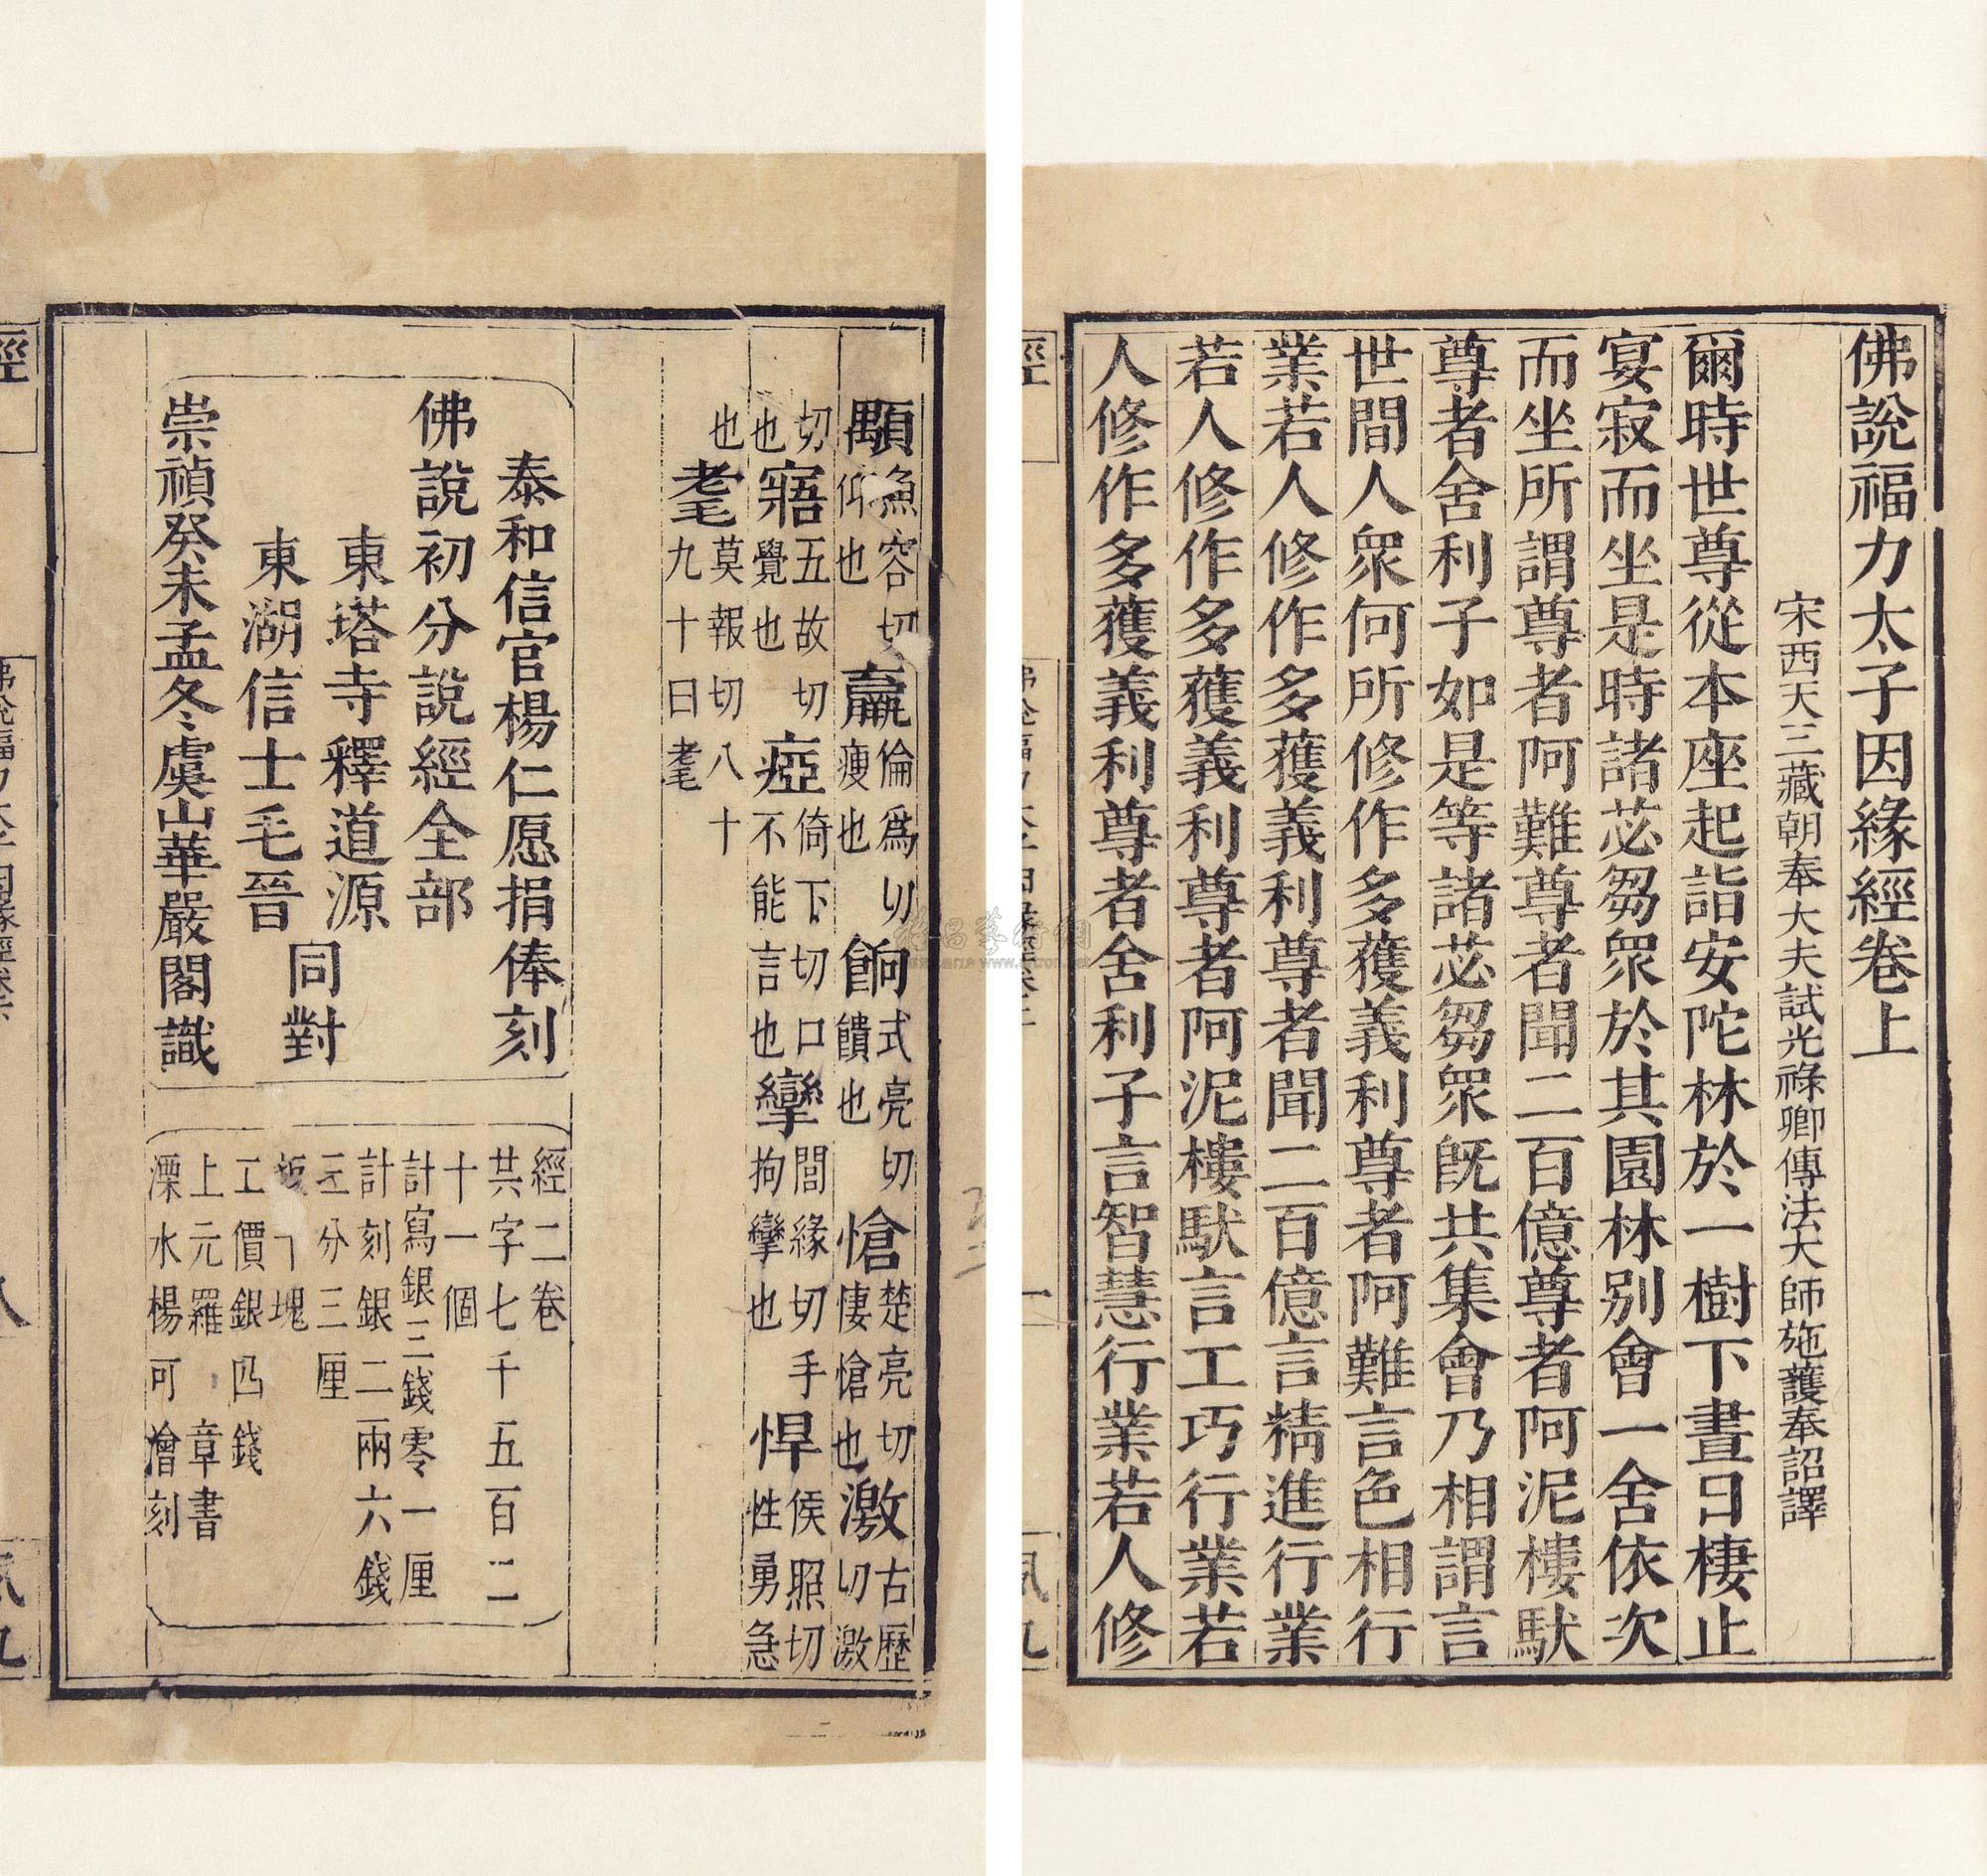 佛說福力太子因緣經卷上
宋西天三藏朝奉大夫試光祿卿傳法大師施護奉詔譯
爾時世尊從本座起詣安陀林於一樹下晝日棲止
宴寂而坐是時諸苾芻眾於其園林別會一舍依次
而坐所謂尊者阿難尊者聞二百億尊者阿泥樓馱
尊者舍利子如是等諸苾芻眾既共集會乃相謂言
世間人眾何所修作多獲義利尊者阿難言色相行
業若人修作多獲義利尊者聞二百億言精進行業
若人修作多獲義利尊者阿泥樓馱言工巧行業若
人修作多獲義利尊者舍利子言智慧行業若人修
顒魚容切仰也 羸倫爲切瘦也 餉式亮切饋也 愴楚亮切悽愴也 激古歷切激
切也 寤五故切覺也 瘂倚下切口不能言也 攣閭緣切手拘攣也 悍侯照切性勇急
也 耄莫報切八十九十曰耄
泰和信官楊仁愿捐俸刻
佛說初分說經全部
東塔寺釋道源
東湖信士毛晉
同對
崇禎癸未孟冬虞山華嚴閣識
經二卷
共字七千五百二
十一個
計寫銀三錢零一厘
計刻銀二兩六錢
三分三厘
工價銀四錢
上元羅章書
溧水楊可澮刻